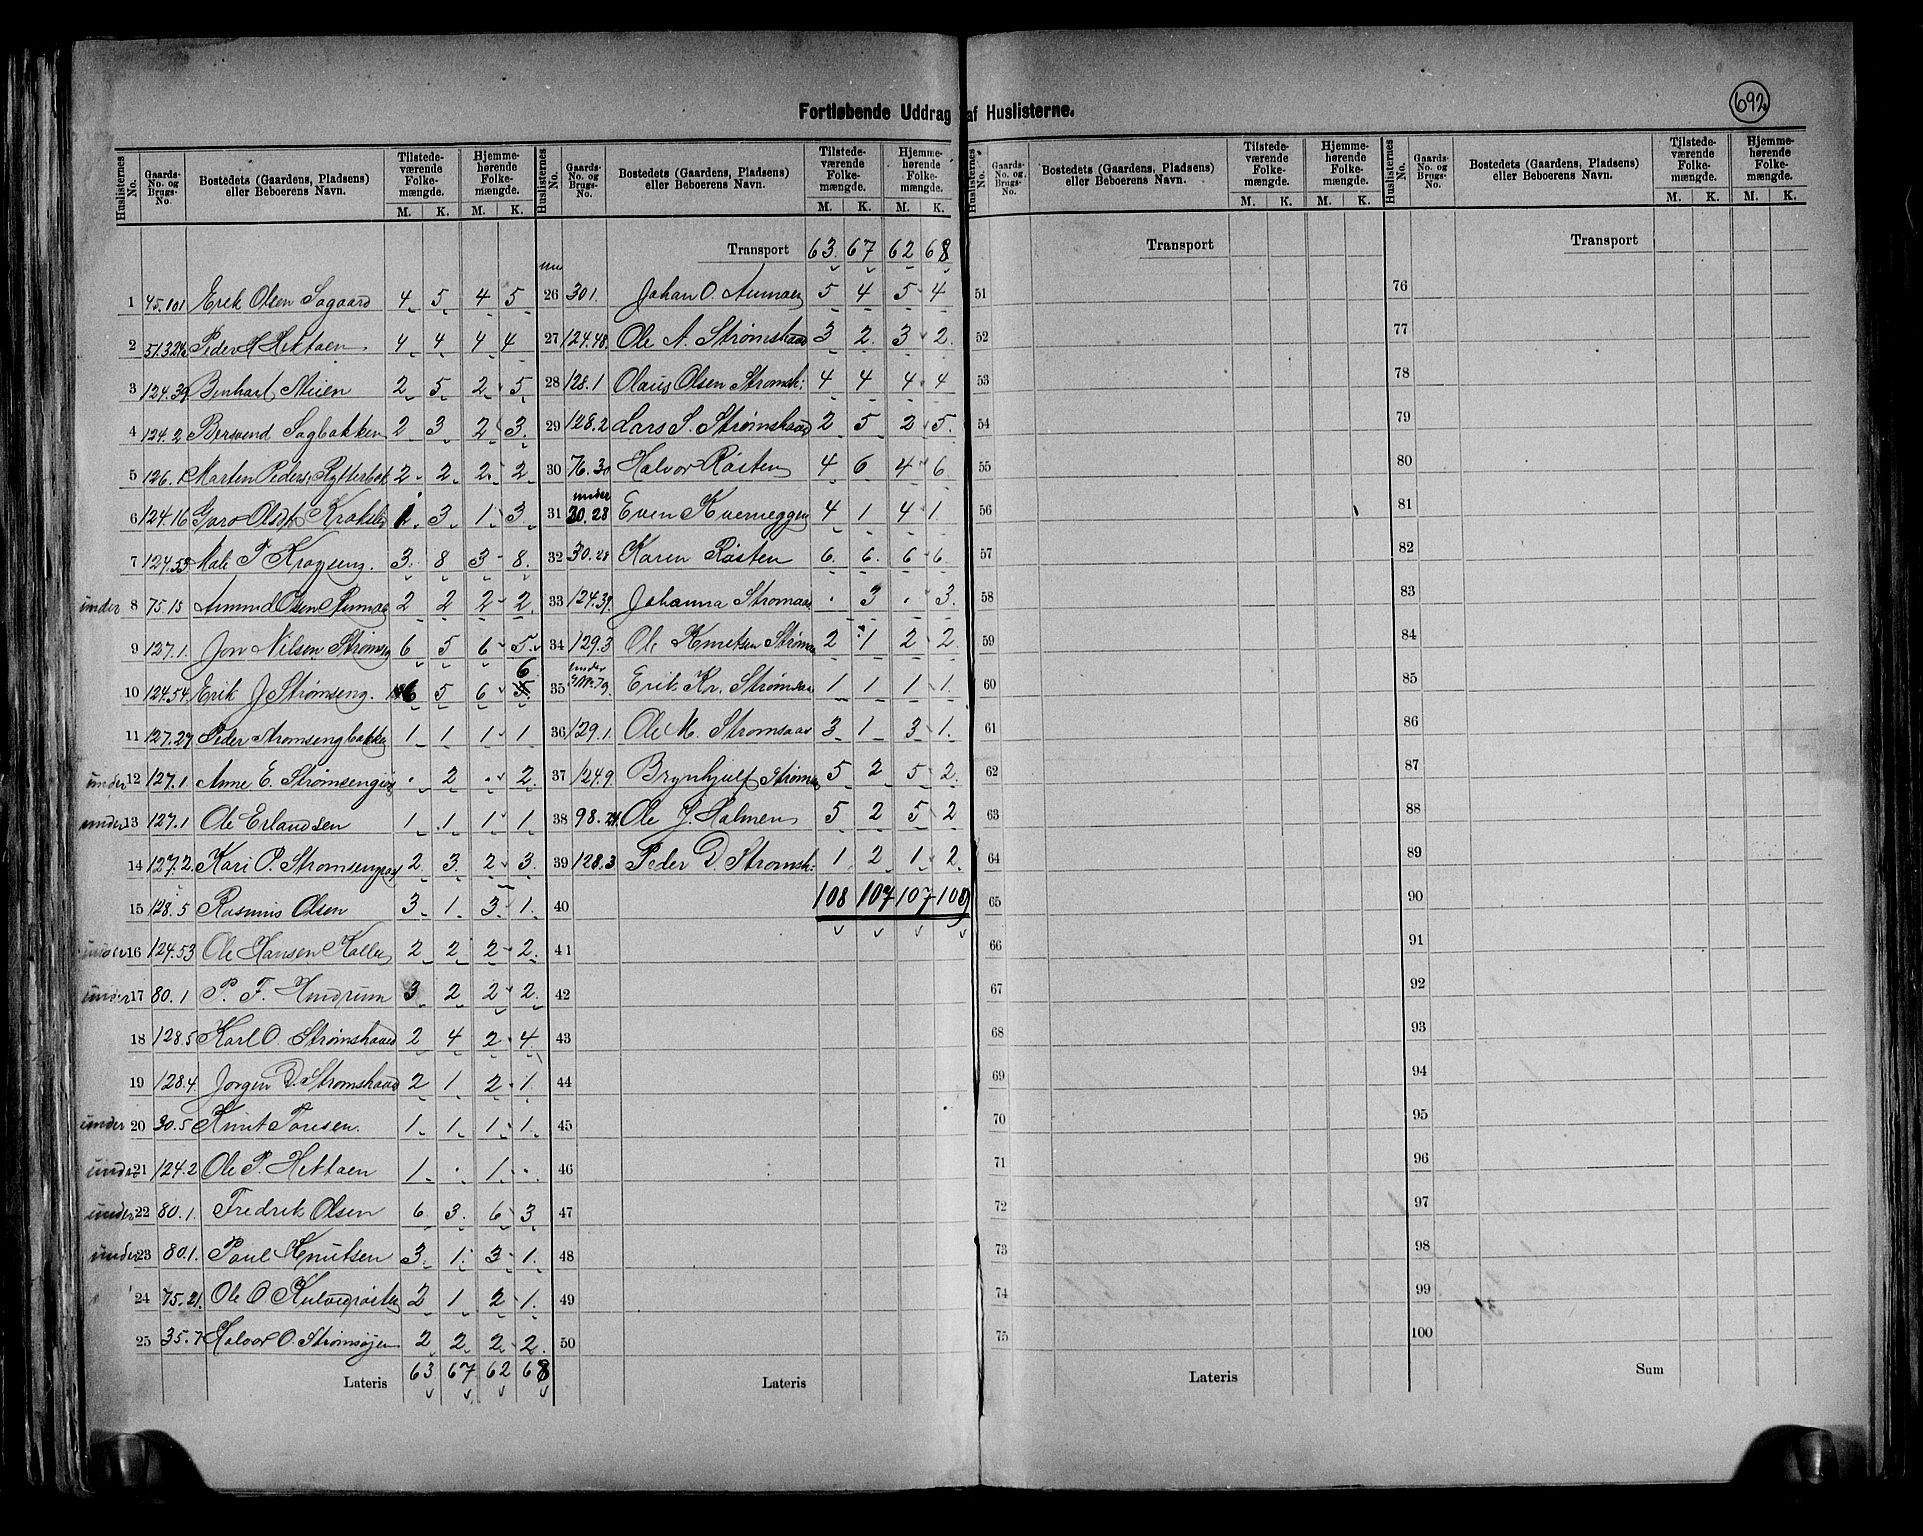 692
Fortløbende Uddrag af Huslisterne.
Huslisternes No. Gaards-No. og Brugs-No. Bostedets (Gaardens, Pladsens) eller Beboerens Navn. Tilstedeværende Folkemængde. M. K. Hjemmehørende Folkemængde. M. K.
1 45.101 Erik Olsen Sogaard 4 5 4 5
2 Peder H Hektoen 4 4 4 4
3 124.39 2 5 2 5
4 124.2 Bersvend Sagbakken 2 3 2 3
5 126.1 Morten Peders. 2 2 2 2
6 124.16 Guro Olsdt. 1 3 1 3
7 124.53 P. Krogeng. 3 8 3 8
under 8 75.15 Amund Olsen 2 2 2 2
9 127.1. Jon Nilsen Strømseng 6 5 6 5
10 124.54 Erik J Strømseng. 6 5 6 6
11 127.27 Peder Strømsengbakken 1 1 1 1
under 12 127.1 Anne E. 2 2
under 13 127.1 Ole Erlandsen 1 1 1 1
14 127.2 Kari P. 2 3 2 3
15 128.5 Rasmus Olsen 3 1 3 1
under 16 124.53 Ole Hansen 2 2 2 2
under 17 80.1 P. F. Hindrum 3 2 2 2
18 128.5 Karl O. Strømshaad 2 4 2 4
19 128.4 Jørgen D. Strømshaad 2 1 2 1
under 20 30.5 Knut Toresen. 1 1 1 1
under 21 124.2 Ole P. Hektoen 1 . 1 .
under 22 80.1. Fredrik Olsen 6 3 6 3
under 23 80.1. Paul Knutsen 3 1 3 1
24 75.21. Ole O 2 1 2 1
25 35.7 Halvor O. Strømsøjen 2 2 2 2
Lateris 63 67 62 68
Huslisternes No. Gaards-No. og Brugs-No. Bostedets (Gaardens, Pladsens) eller Beboerens Navn. Tilstedeværende Folkemængde. M. K. Hjemmehørende Folkemængde. M. K.
Transport 63 67 62 68
26 30 1. Johan O. Aunaas 5 4 5 4
27 124.48 Ole A. Strømshaad 3 2 3 2
28 128.1 Olaus Olsen Strømsh: 4 4 4 4
29 128.2 Lars S. Strømshaad 2 5 2 5
30 76.30 Halvor Røsten 4 6 4 6
under
31 30.28 Even Kverneggen 4 1 4 1
32 30.28 Karen Røsten 6 6 6 6
33 124.39 Johanna Strømaas . 3 . 3
34 129.3 Ole Knutsen 2 1 2 2
under
35 Erik Kr. Strømsaas 1 1 1 1
36 129.1. Ole M. Strømsaas 3 1 3 1
37 124.9 Brynhjulf 5 2 5 2
38 98.21 Ole J. Holmen 5 2 5 2
39 128.3 Peder D. Strømsh: 1 2 1 2
40 108 107 107 109
41
42
43
44
45
46
47
48
49
50
Lateris
Huslisternes No. Gaards-No. og Brugs-No. Bostedets (Gaardens, Pladsens) eller Beboerens Navn. Tilstedeværende Folkemængde. M. K. Hjemmehørende Folkemængde. M. K.
Transport
51
52
53
54
55
56
57
58
59
60
61
62
63
64
65
66
67
68
69
70
71
72
73
74
75
Lateris
Huslisternes No. Gaards-No. og Brugs-No. Bostedets (Gaardens, Pladsens) eller Beboerens Navn. Tilstedeværende Folkemængde. M. K. Hjemmehørende Folkemængde. M. K.
Transport
76
77
78
79
80
81
82
83
84
85
86
87
88
89
90
91
92
93
94
95
96
97
98
99
100
Sum